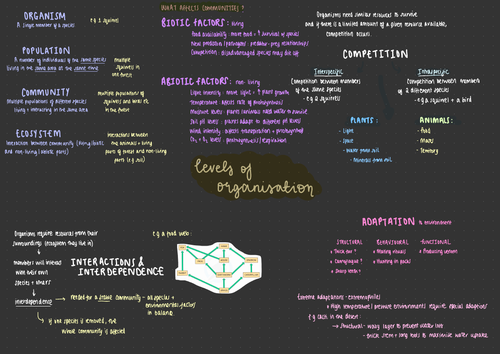 ORGANISM
A single member of a species
e.g 2 squirrels
POPULATION
A number of individuals of the same species
living in the same area at the same time
multiple
squirrels in
the forest
COMMUNITY
Multiple populations of different species
living + interacting in the same area
multiple populations of
squirrels and
in the forest
ECOSYSTEM
Interaction between community (living/biotic)
and non-living (abiotic parts)
Interactions between
the animals + living
parts of forest and non-living
parts (e.g soil)
WHAT AFFECTS COMMUNITIES?
BIOTIC FACTORS: living
Food availability: more food = ↑ survival of species
New predators/pathogens: predator-prey relationships
Competition: disadvantaged species may die off
ABIOTIC FACTORS: non-living
Light intensity: more light = ↑ plant growth
Temperature: affects rate of photosynthesis
Moisture levels: plants + animals need water to survive
Soil pH levels: plants adapt to different pH levels
Wind intensity: affects transpiration + photosynthesis
CO₂ + O₂ levels: photosynthesis/respiration
Organisms need similar resources to survive
and if there is a limited amount of a given resource available,
competition occurs
COMPETITION
Interspecific
Competition between members
of the same species
- e.g 2 squirrels
Intraspecific
Competition between members
of 2 different species
- e.g a squirrel + a bird
PLANTS:
- Light
- Space
- Water from soil
- Minerals from soil
ANIMALS:
- Food
- Mates
- Territory
levels of
organisation
Organisms require resources from their
surroundings (ecosystem they live in)
members will interact
with their own
species + others
interdependence
INTERACTIONS &
INTERDEPENDENCE
e.g a food web:
needed for a stable community - all species +
environmental factors
in balance
if one species is removed, the
whole community is affected
ADAPTATION to environment
STRUCTURAL
• Thick fur
• Camouflage
• Sharp teeth
BEHAVIOURAL
• Mating rituals
• Hunting in packs
FUNCTIONAL
• Producing venom
Extreme adaptations - extremophiles
High temperature/pressure environments require special adaptations
e.g cacti in the desert:
structural - waxy layer to prevent water loss
- thick stem + long roots to maximise water uptake